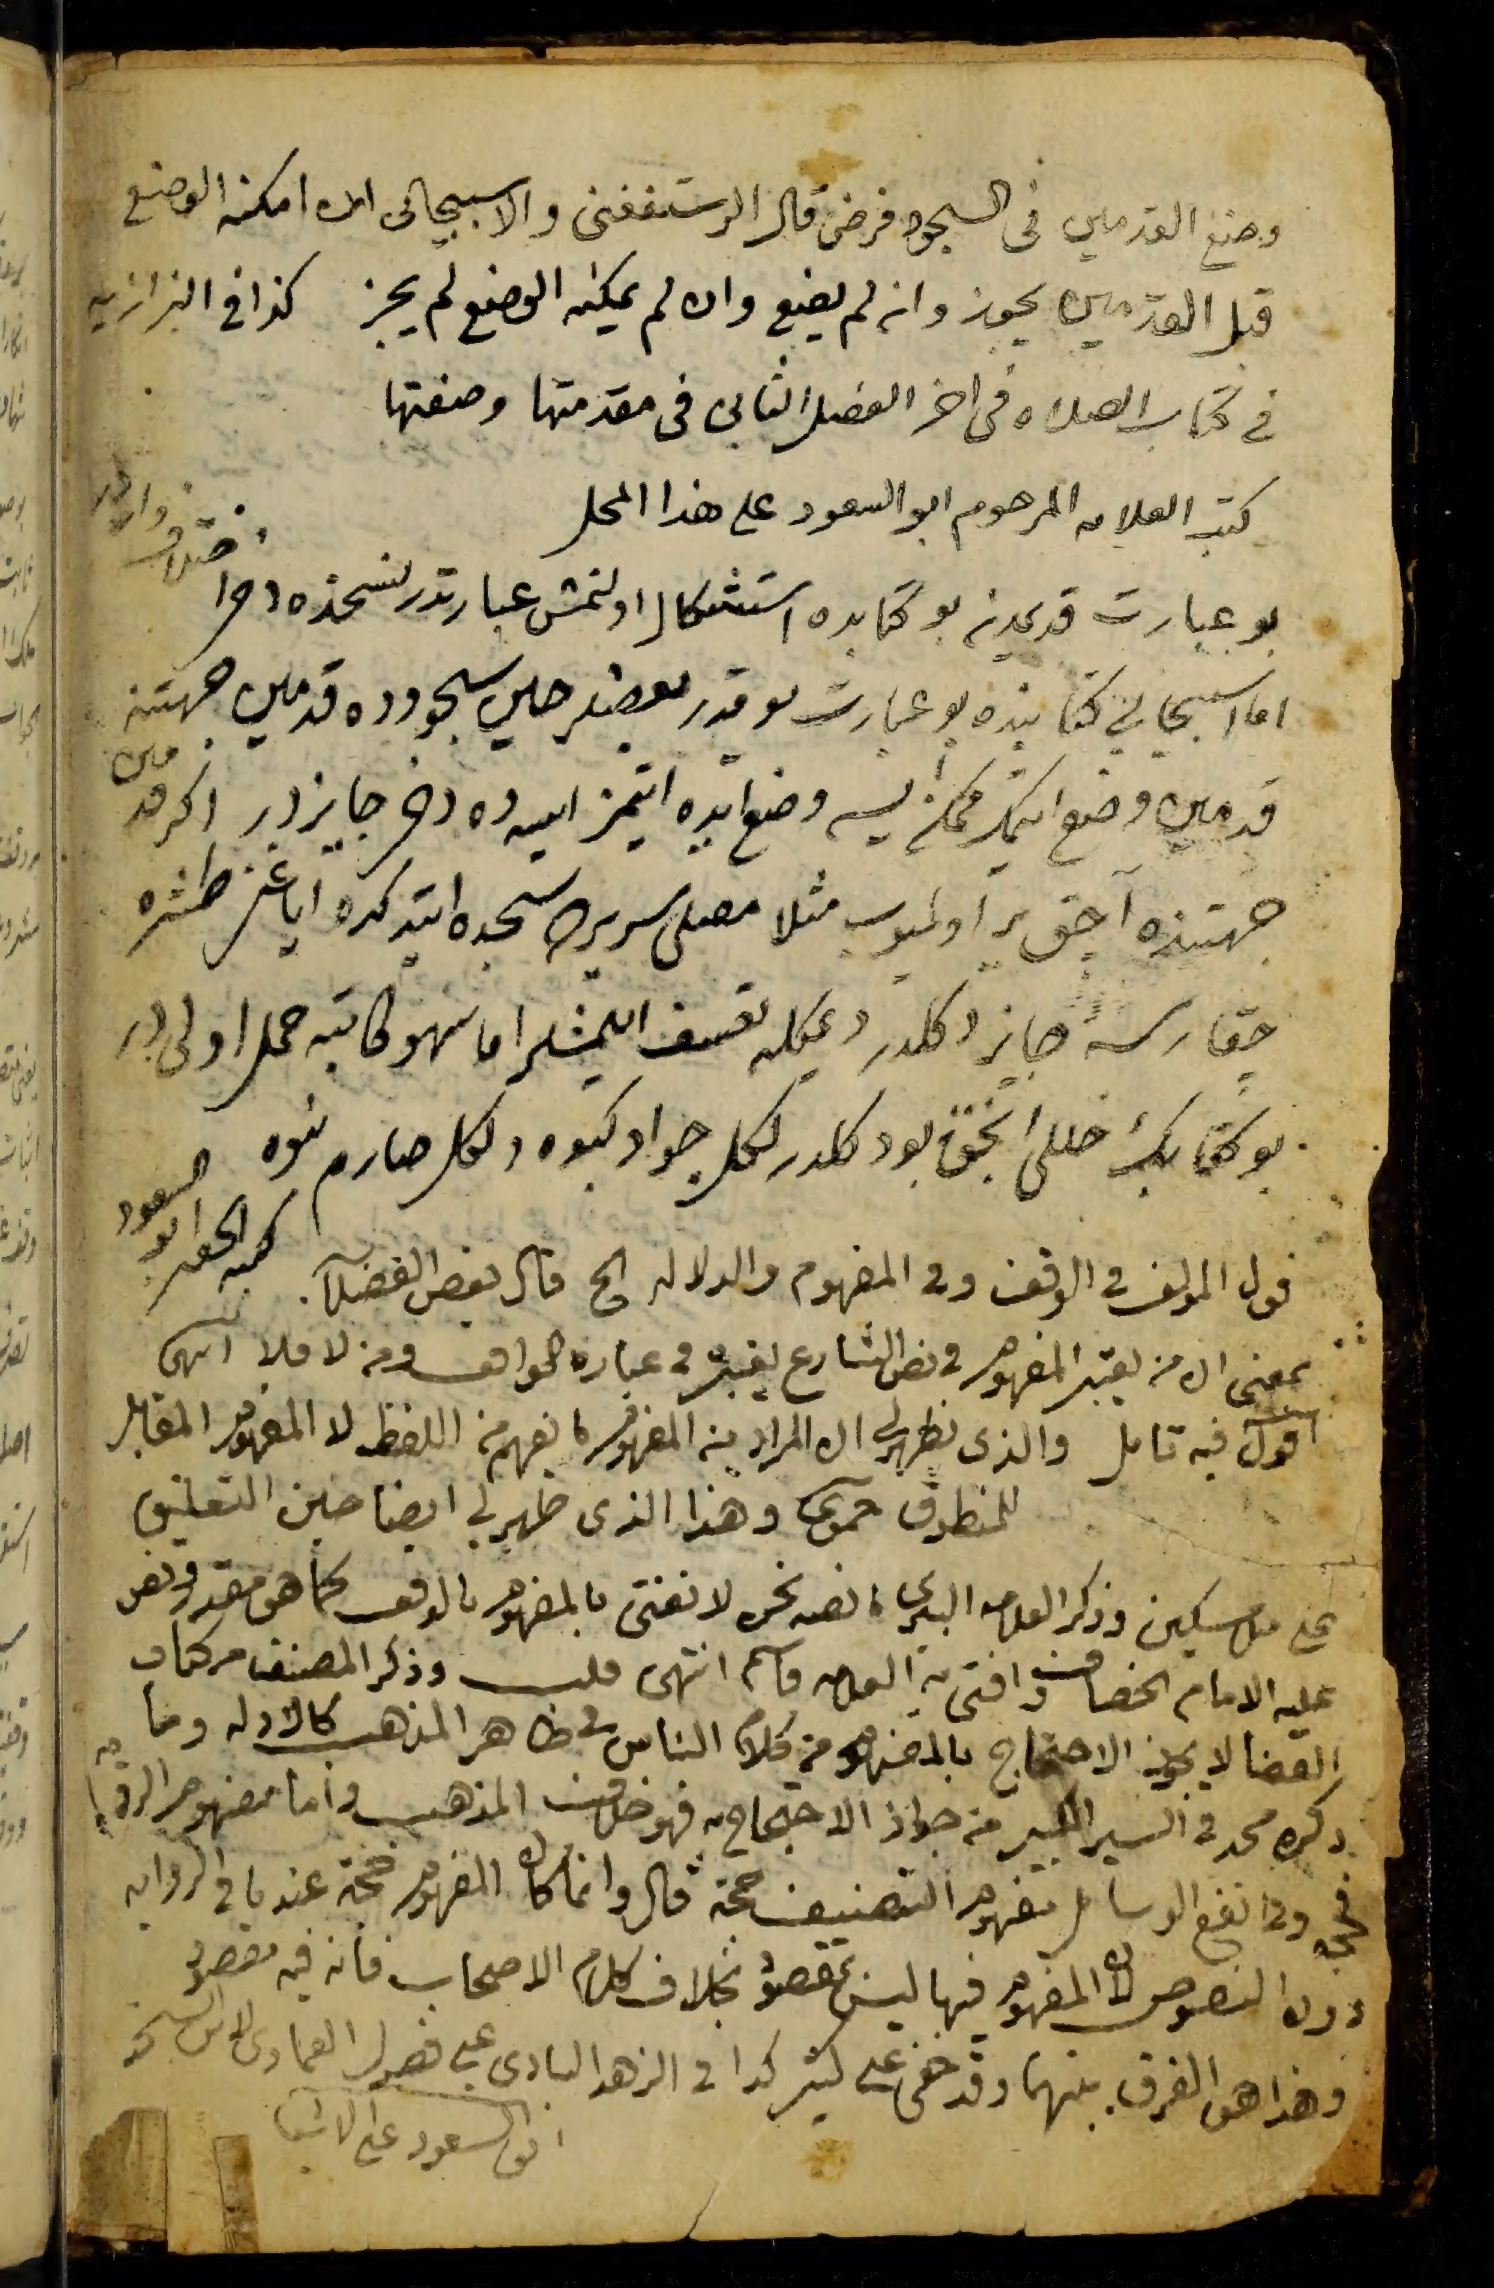 وضع القدمين فى السجود فرض قال الرستغفنى والاسبيجابى ان امكنه الوضع
قبل القدمين يجوز وان لم يضع وان لم يمكنه الوضع لم يجز كذا فى البزازيه
فى كتاب الصلاه فى اخر الفصل الثانى فى مقدمتها وصفتها
كتب العلامه المرحوم ابو السعود على هذا المحل
بو عبارت قديمدنه بو كتابده استشكال اولنمش عبارتدر نسخده دخى اختلاف واردر
اما اسبيجابى كتابنده بو عبارت يوقدر بعضلر حين سجودده قدمين جهتنه
قدمين وضع ايتمك ممكن ايسه وضع ايده ايتمز ايسه ده دخى جايزدر اكر قدمين
جهتنده آچق ير اولميوب مثلا مصلى سريره سجده ايتدكده اياغن طشره
چقارسه جايز دكلدر ديمكله تعسف ايلمشلر اما سهو كاتبه حمل اولى در
بو كتابك خللى انجق بو دكلدر لكل جواد كبوه ولكل صارم نبوه
كتبه الحقير ابو السعود
قول المولف فى الوقف وفى المفهوم والدلاله الخ قال بعض الفضلآ
بمعنى ان من يعتبر المفهوم فى نص الشارع يعتبره فى عبارة الواقف ومن لا فلا انتهى
اقول فيه تامل والذى يظهر لى ان المراد من المفهوم ما يفهم من اللفظ لا المفهوم المقابل
للمنطوق حموى وهذا الذى ظهر لى ايضا حين التعليق
على منلا مسكين وذكر العلامه البيرى ما نصه نحن لا نفتى بالمفهوم بالوقف كما هو مقرر ونص
عليه الامام الخصاف وافتى به العلامه قاسم انتهى قلت وذكر المصنف من كتاب
القضا لا يجوز الاحتجاج بالمفهوم من كلام الناس فى ظاهر المذهب كالادله وما
ذكره محمد فى السير الكبير من جواز الاحتجاج به فهو خلاف المذهب واما مفهوم الروايه
فحجه وفى انفع الوسائل مفهوم التصنيف حجة قال وانما كان المفهوم حجة عندنا فى الروايه
دون النصوص لان المفهوم فيها ليس بمقصود بخلاف كلام الاصحاب فانه فيه مقصود
وهذا هو الفرق بينهما وقد خفى على كثير كذا فى الزهر البادى على فصول العمادى لابن الشحنه
ابو السعود على الاشباه